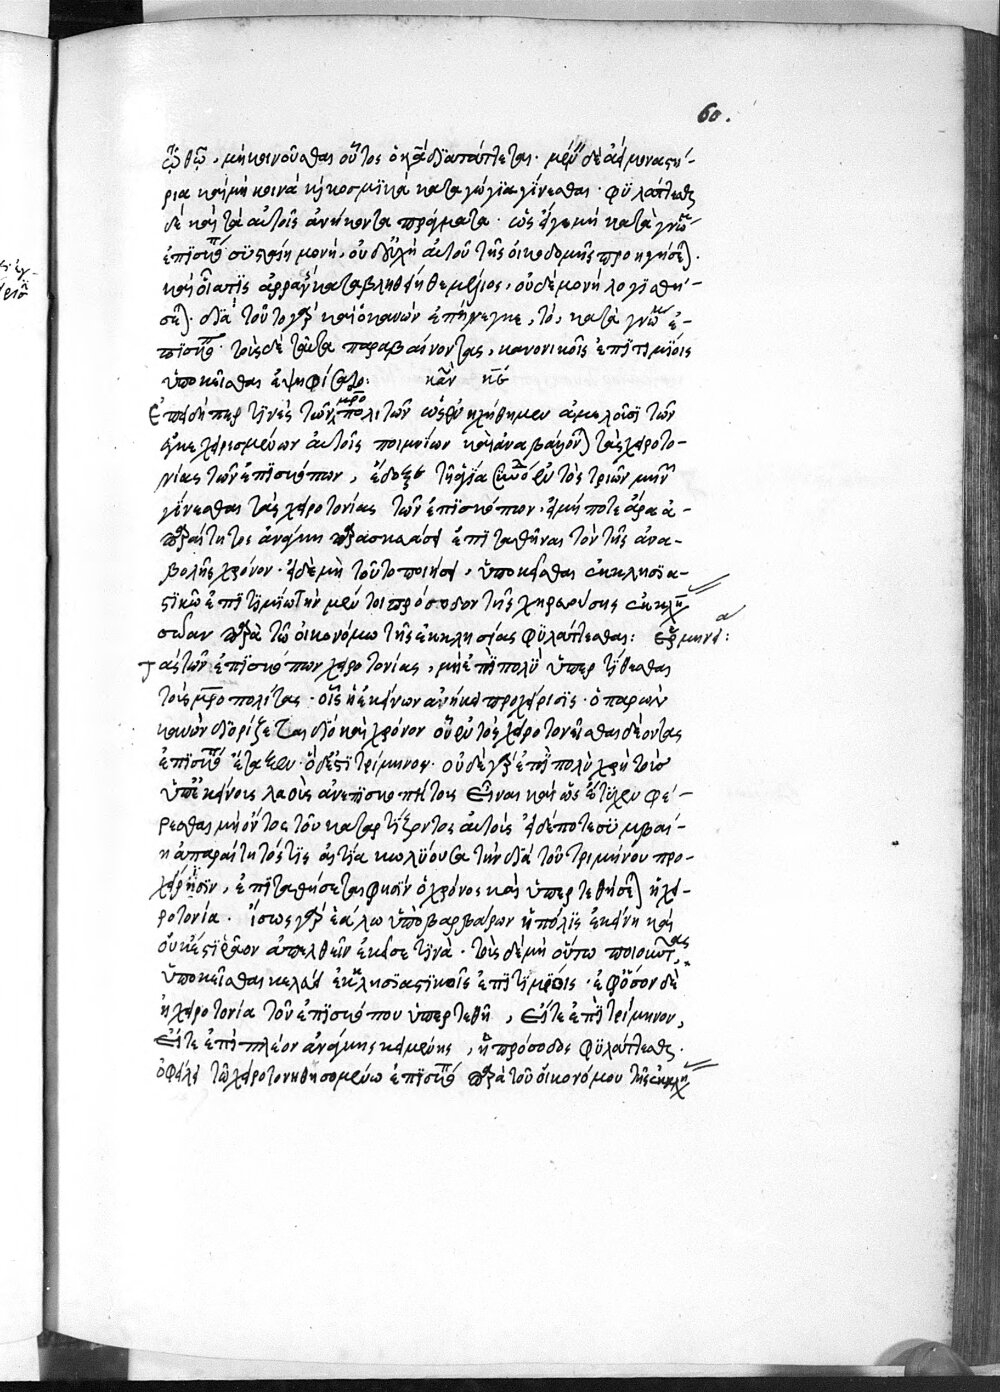 60.
τῷ θῶ, μὴ κοινοῦσθαι οὗτος ὁ κα διαπράττεται. μένειν δὲ ἀεὶ μοναστή-
ρια καὶ μὴ κοινὰ καὶ κοσμικὰ καταγώγια γίνεσθαι. φυλάττεσθαι
δὲ καὶ τὰ αὐτοῖς ἀνήκοντα πράγματα. κατὰ γνώμην
ἐπισκόπου μονή, αὐτοῦ τῆς οἰκοδομῆς προηγήσεται.
καταβληθείη θεμέλιος, οὐδὲ μονὴ λογισθή-
σεται. διὰ τοῦτο γὰρ καὶ ὁ κανὼν ἐπήνεγκε, τό, κατὰ γνώμην ἐ-
πισκόπου. τοὺς δὲ ταῦτα παραβαίνοντας, κανονικοῖς ἐπιτιμίοις
ὑποκεῖσθαι ἐψηφίσατο: κανὼν κε
Ἐπειδήπερ τινὲς τῶν μητροπολιτῶν ὡς ἐνηχήθημεν ἀμελοῦσι τῶν
ἐγκεχειρισμένων αὐτοῖς ποιμνίων καὶ ἀναβάλλονται τὰς χειροτο-
νίας τῶν ἐπισκόπων, ἔδοξε τῇ ἁγίᾳ συνόδῳ ἐντὸς τριῶν μηνῶν
γίνεσθαι τὰς χειροτονίας τῶν ἐπισκόπων. εἰ μή ποτε ἄρα ἀ-
παραίτητος ἀνάγκη παρασκευάσει ἐπιταθῆναι τὸν τῆς ἀνα-
βολῆς χρόνον. εἰ δὲ μὴ τοῦτο ποιήσει, ὑποκεῖσθαι ἐκκλησια-
στικῷ ἐπιτιμίῳ τὴν μέντοι πρόσοδον τῆς χηρευούσης ἐκκλη
σώαν παρὰ τῷ οἰκονόμῳ τῆς ἐκκλησίας φυλάττεσθαι: ἑρμηνεία:
Τὰς τῶν ἐπισκόπων χειροτονίας, μὴ ἐπὶ πολὺ ὑπερτίθεσθαι
τοὺς μητροπολίτας. οἷς ἡ ἐκείνων ἀνήκει προχείρισις. ὁ παρὼν
κανὼν διορίζεται διὸ καὶ χρόνον οὗ ἐντὸς χειροτονεῖσθαι δέοντας
ἐπισκόπους ἔταξεν. ὁ δέ ἐστι τρίμηνος. οὐδὲ γὰρ ἐπὶ πολὺ χρὴ τοὺς
ὑπ' ἐκείνοις λαοὺς ἀνεπισκοπήτους εἶναι καὶ ὡς ἔτυχεν φέ-
ρεσθαι μὴ ὄντος τοῦ καταρτίζοντος αὐτοὺς εἰ δέ ποτε συμβαί-
η ἀπαραίτητός τις αἰτία κωλύουσα τὴν διὰ τοῦ τριμήνου προ-
χείρησιν, ἐπιταθήσεται φησὶν ὁ χρόνος καὶ ὑπερτεθήσεται ἡ χει-
ροτονία. ἴσως γὰρ ἑάλω ὑπὸ βαρβάρων ἡ πόλις ἐκείνη καὶ
οὐκ ἔστι ῥᾷον ἀπελθεῖν ἐκεῖσε τινά. τοὺς δὲ μὴ οὕτω ποιοῦντας
ὑποκεῖσθαι κελεύει ἐκκλησιαστικοῖς ἐπιτιμίοις. ἐφ' ὅσον δὲ
ἡ χειροτονία τοῦ ἐπισκόπου ὑπερτεθῆ, εἴτε ἐπὶ τρίμηνον,
εἴτε ἐπὶ πλέον ἀνάγκης καλούσης, ἡ πρόσοδος φυλάττεσθαι
ὀφείλει τῷ χειροτονηθησομένῳ ἐπισκόπῳ παρὰ τοῦ οἰκονόμου τῆς ἐκκλη